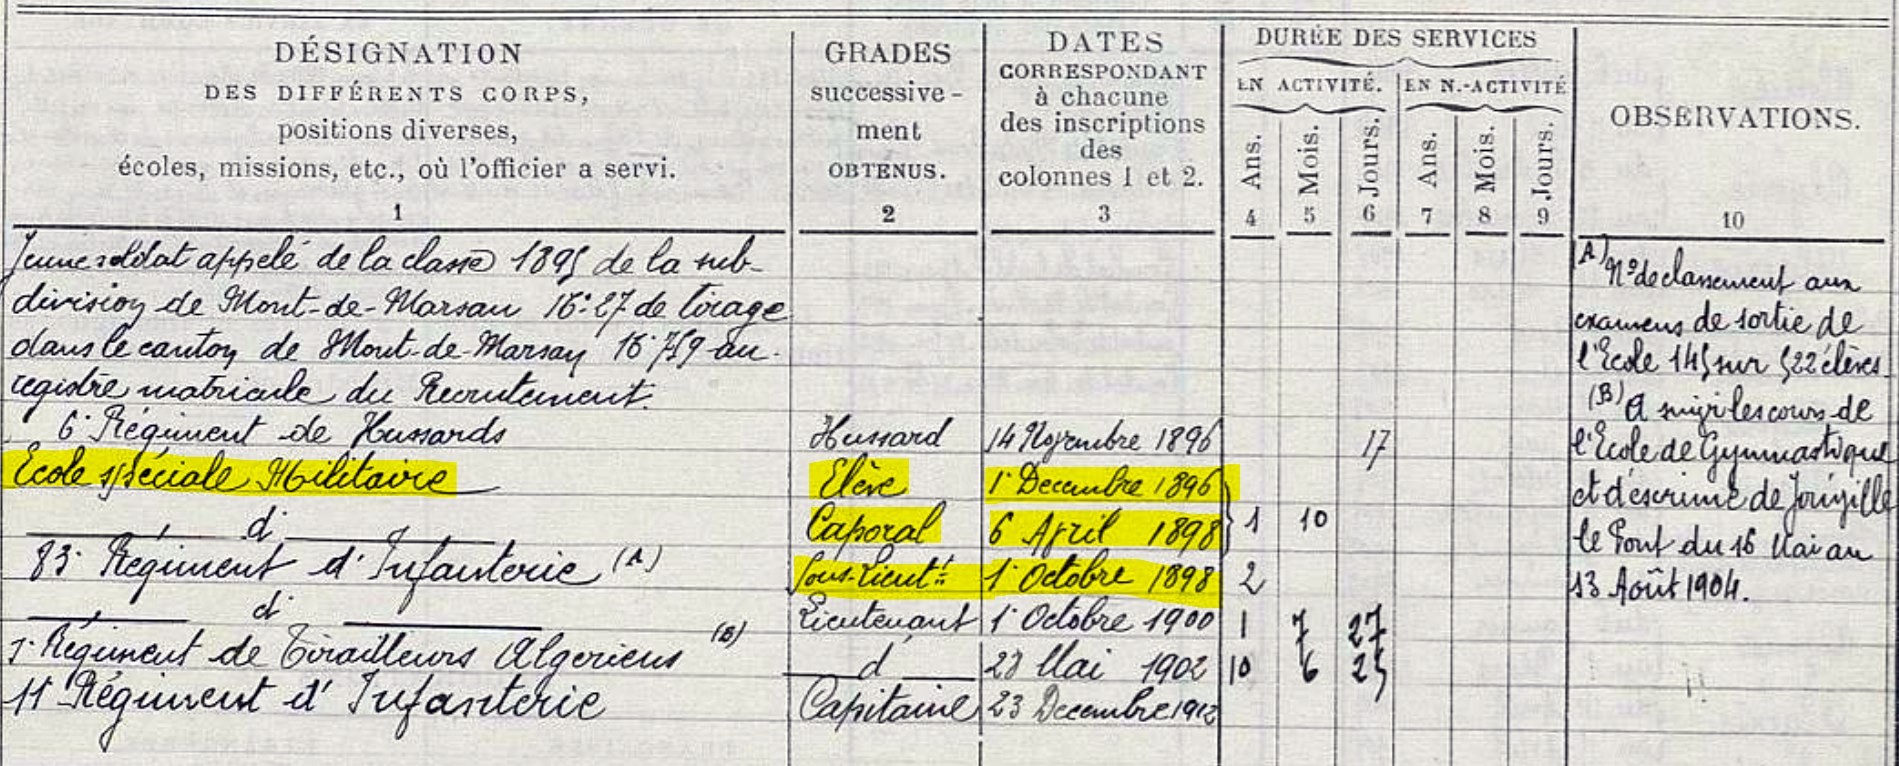 DÉSIGNATION
DES DIFFÉRENTS CORPS,
positions diverses,
écoles, missions, etc., où l'officier a servi.
1
GRADES
successive-
ment
OBTENUS.
2
DATES
CORRESPONDANT
à chacune
des inscriptions
des
colonnes 1 et 2.
3
DURÉE DES SERVICES
EN ACTIVITÉ. EN N.-ACTIVITÉ
Ans. Mois. Jours. Ans. Mois. Jours.
4 5 6 7 8 9
OBSERVATIONS.
10
Jeune soldat appelé de la classe 1895 de la sub-
division de Mont-de-Marsan N° 27 de tirage
dans le canton de Mont-de-Marsan N° 759 au
registre matricule du Recrutement.
6° Régiment de Hussards Hussard 14 Novembre 1896 17
Ecole spéciale Militaire Elève 1° Decembre 1896
d° Caporal 6 Avril 1898 1 10
83° Régiment d'Infanterie (A) Sous-Lieutt 1° Octobre 1898 2
d° Lieutenant 1° Octobre 1900 1 7 27
Régiment de Tirailleurs Algeriens (B) d° 28 Mai 1902 10 6 25
11° Régiment d'Infanterie Capitaine 23 Decembre 1912
(A) N° de classement aux
examens de sortie de
l'Ecole 145 sur 522 élèves
(B) A suivi les cours de
l'Ecole de Gymnastique
et d'escrime de Joinville
le Pont du 16 Mai au
13 Août 1904.